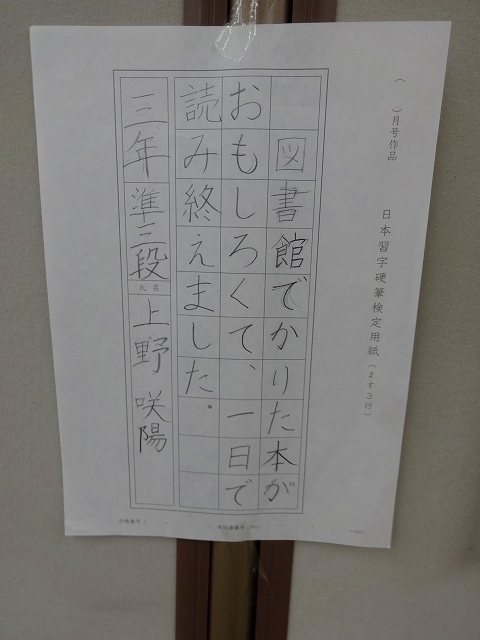 ( )月号作品
日本習字硬筆検定用紙(ます3行)
図書館でかりた本が
おもしろくて、一日で
読み終えました。
三年 準三段 氏名 上野 咲陽